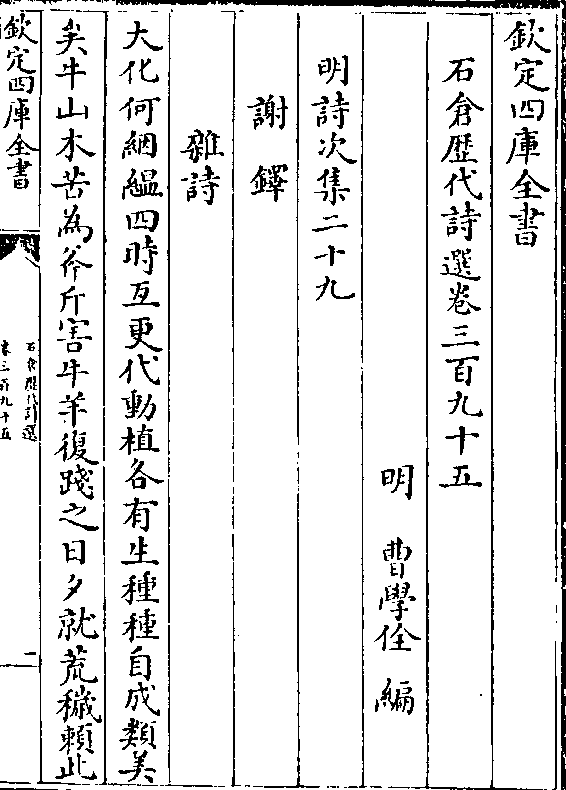 欽定四庫全書
石倉歴代詩選卷三百九十五
明 曹學佺 編
明詩次集二十九
謝鐸
雜詩
大化何絪縕四時互更代動植各有生種種自成類美
矣牛山木苦為斧斤害牛羊復踐之日夕就荒穢頼此
欽定四庫全書
石倉歷代詩選
卷三百九十五
一